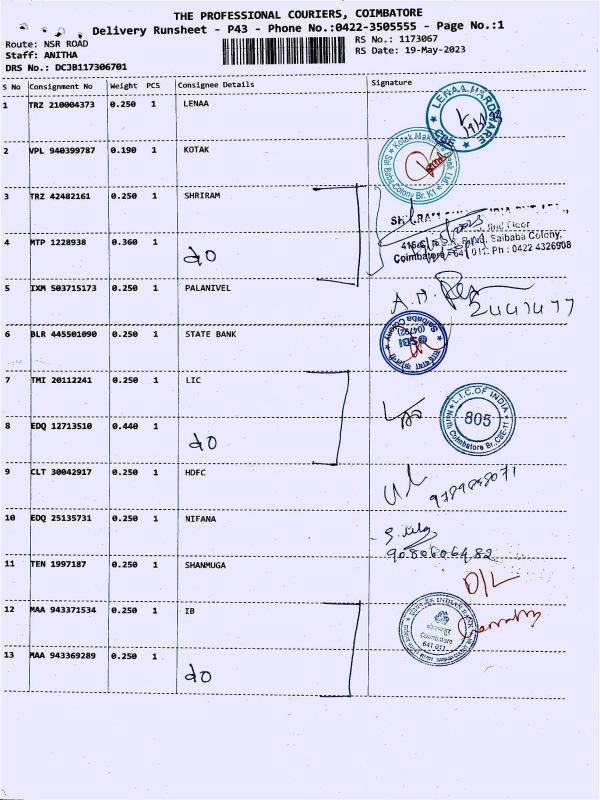 THE PROFESSIONAL COURIERS, COIMBATORE
Delivery Runsheet - P43 - Phone No.:0422-3505555 - Page No.:1
Route: NSR ROAD RS No.: 1173067
Staff: ANITHA RS Date: 19-May-2023
DRS No.: DCJB117306701
S No Consignment No Weight PCS Consignee Details Signature
1 TRZ 210004373 0.250 1 LENAA
LENAA HARDWARE CBE
2 VPL 940399787 0.190 1 KOTAK
3 TRZ 42482161 0.250 1 SHRIRAM
4 MTP 1228938 0.360 1
do
Saibaba Colony,
Coimbatore - 641 011. Ph : 0422 4326908
5 IXM 503715173 0.250 1 PALANIVEL
6 BLR 445501090 0.250 1 STATE BANK
SBI
Saibaba Colony
7 TMI 20112241 0.250 1 LIC
L.I.C.OF INDIA
805
North Coimbatore Br.,CBE-11
8 EDQ 12713510 0.440 1
do
9 CLT 30042917 0.250 1 HDFC
10 EDQ 25135731 0.250 1 NIFANA
11 TEN 1997187 0.250 1 SHANMUGA
D/L
12 MAA 943371534 0.250 1 IB
INDIAN BANK
Coimbatore
641 011
13 MAA 943369289 0.250 1
do